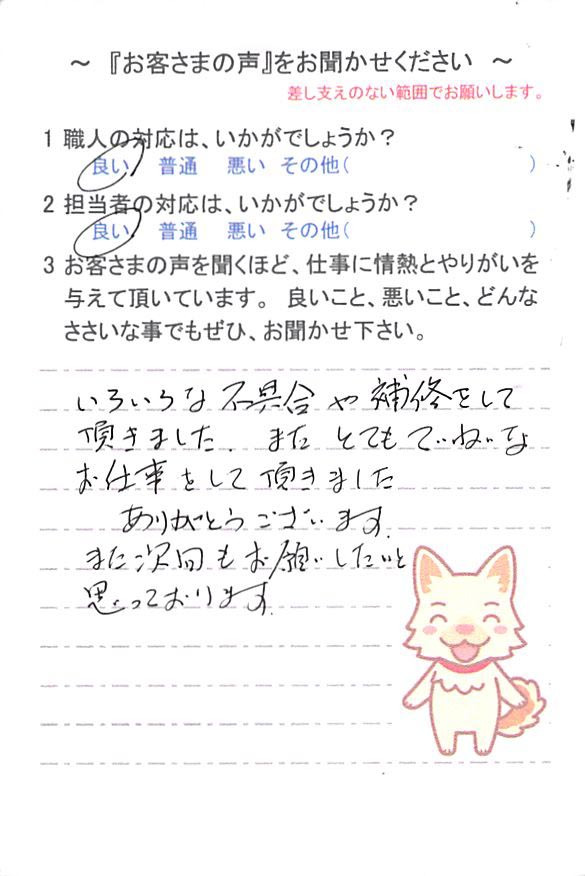 ～ 『お客さまの声』をお聞かせください ～
差し支えのない範囲でお願いします。
1 職人の対応は、いかがでしょうか？
良い 普通 悪い その他( )
2 担当者の対応は、いかがでしょうか？
良い 普通 悪い その他( )
3 お客さまの声を聞くほど、仕事に情熱とやりがいを
与えて頂いています。 良いこと、悪いこと、どんな
ささいな事でもぜひ、お聞かせ下さい。
いろいろな不具合や補修をして
頂きました。またとてもていねいな
お仕事をして頂きました
ありがとうございます。
また次回もお願いしたいと
思っております。